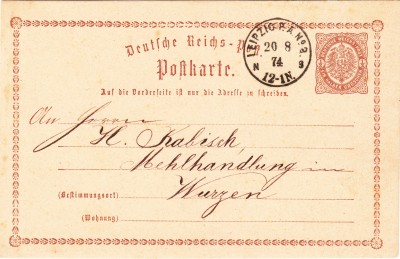 Deutsche Reichs-P
Postkarte.
LEIPZIG P.A. No 3.
20 8
74
N 3
12-1N.
Auf die Vorderseite ist nur die Adresse zu schreiben.
An Herrn
H. Kabisch,
Mehlhandlung in
(Bestimmungsort) Wurzen
(Wohnung)